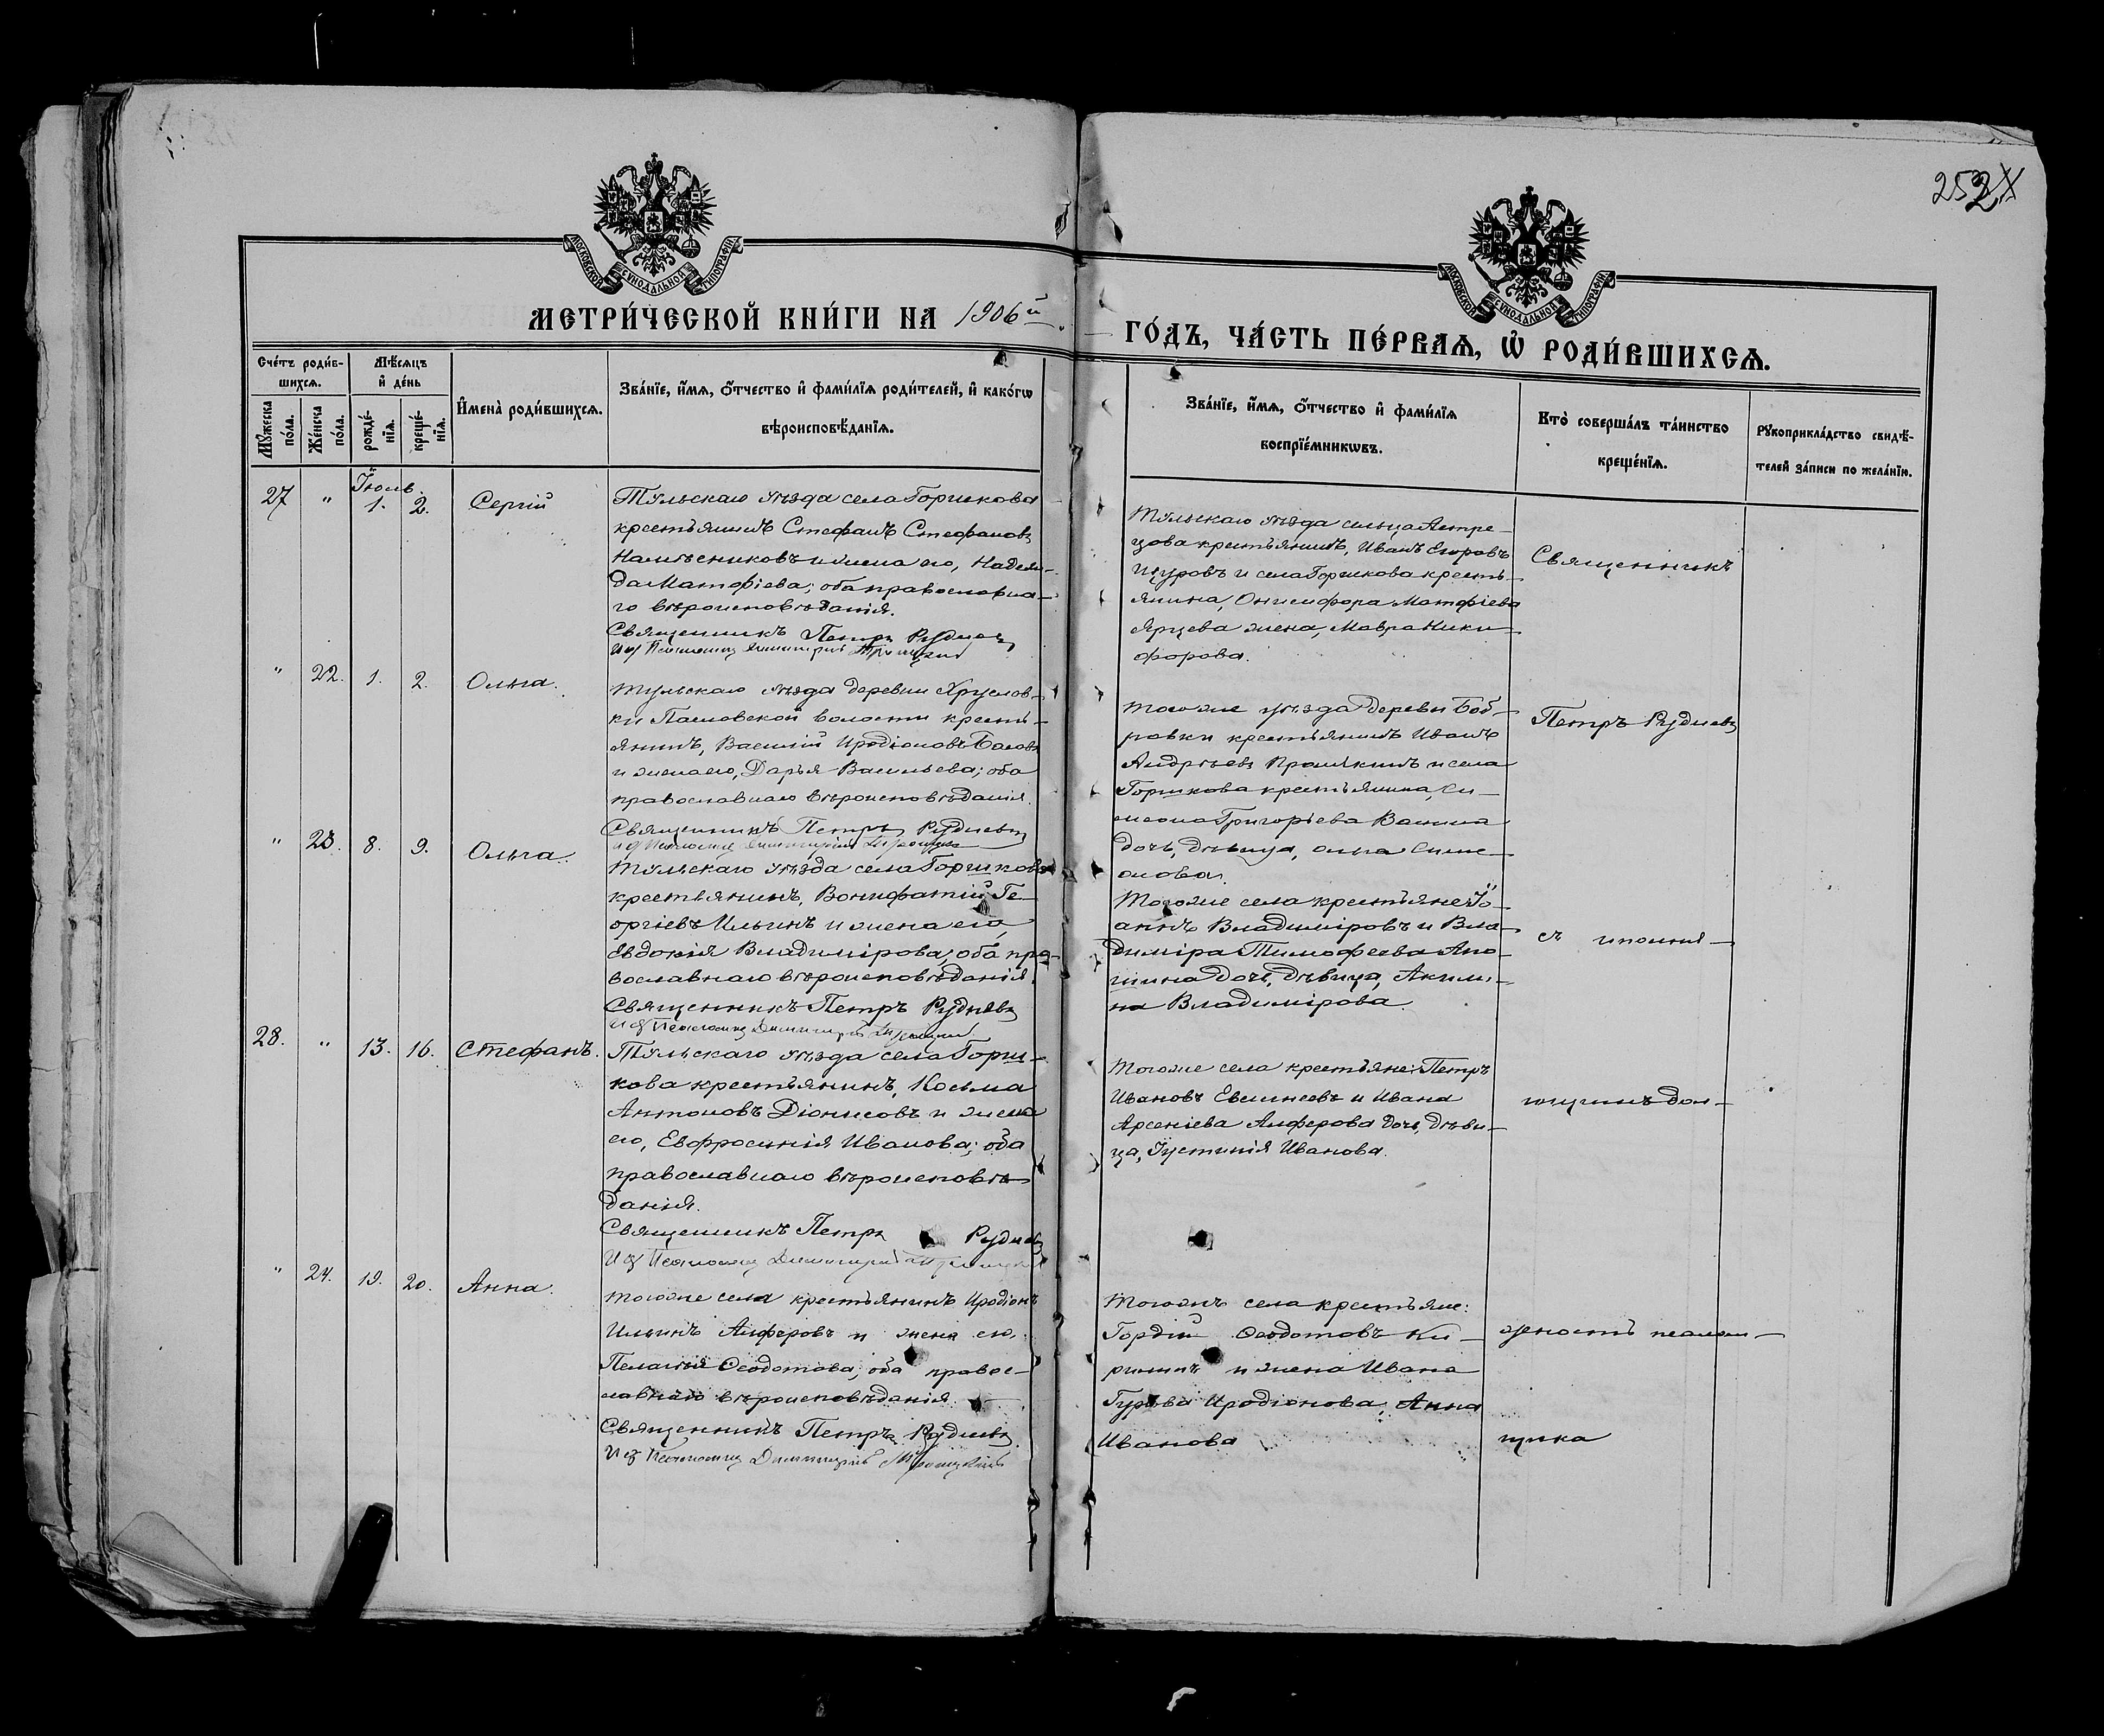 252
МОСКОВСКОЙ СѴНОДАЛЬНОЙ ТИПОГРАФІИ
МОСКОВСКОЙ СѴНОДАЛЬНОЙ ТИПОГРАФІИ
МЕТРИ́ЧЕСКОЙ КНИ́ГИ НА 1906й
ГО́ДЪ, ЧА́СТЬ ПЕ́РВАѦ, Ѽ РОДИ́ВШИХСѦ.
Сче́тъ роди́в-
шихсѧ.
Мꙋ́жеска по́ла.
Же́нска по́ла.
Мѣ́сѧцъ
и҆ де́нь
рожде́-
нїѧ.
креще́-
нїѧ.
И҆мена̀ роди́вшихсѧ.
Зва́нїе, и҆́мѧ, ѻ҆́тчество и҆ фами́лїѧ роди́телей, и҆ како́гѡ
вѣроисповѣ́данїѧ.
Зва́нїе, и҆́мѧ, ѻ҆́тчество и҆ фами́лїѧ
воспрїе́мникѡвъ.
Кто̀ соверша́лъ та́инство
креще́нїѧ.
Рꙋкоприкла́дство свидѣ́-
телей за́писи по жела́нїю.
Іюль.
27 " 1. 2. Сергій
Тульскаго уѣзда села Горшкова
крестьянинъ Стефанъ Стефановъ
Намѣсниковъ и жена его, Надеж-
да Матфіева; оба православна-
го вѣроисповѣданія.
Священникъ Петръ Рудневъ
И д Псаломщ Димитрій Троицкій
Тульскаго уѣзда сельца Петре-
цова крестьянинъ, Иванъ Егоровъ
Щуровъ и села Горшкова кресть-
янина, Онисифора Матфіева
Ярцева жена, Мавра Ники-
форова.
Священникъ
" 22. 1. 2. Ольга.
Тульскаго уѣзда деревни Хруслов-
ки Пасловской волости кресть-
янинъ, Василій Иродіоновъ
и жена его, Дарья Васильева; оба
православнаго вѣроисповѣданія.
Священникъ Петръ Рудневъ
И д Псаломщ Димитрій Троицкій
Тогоже уѣзда деревн Боб-
ровки крестьянинъ Иванъ
Андреевъ и села
Горшкова крестьянина, Си-
меона Григорьева Ванина
дочь, дѣвица, Ольга Симе-
онова.
Петръ Рудневъ
" 23. 8. 9. Ольга.
Тульскаго уѣзда села Горшкова
крестьянинъ, Вонифатій Ге-
оргіевъ Ильинъ и жена его,
Евдокія Владимірова; оба пра-
вославнаго вѣроисповѣданія.
Священникъ Петръ Рудневъ
И д Псаломщ Димитрій Троицкій
Тогоже села крестьяне: Іо-
аннъ Владиміровъ и Вла-
диміра Тимофеева Ано-
шина дочь, дѣвица, Акили-
на Владимірова.
съ исполня-
28. " 13. 16. Стефанъ.
Тульскаго уѣзда села Горш-
кова крестьянинъ, Косьма
Антоновъ Діонисовъ и жена
его, Евфросинія Иванова; оба
православнаго вѣроисповѣ-
данія.
Священникъ Петръ Рудневъ
И д Псаломщ Димитрій Троицкій
Тогоже села крестьяне: Петръ
Ивановъ Евсинсевъ и Ивана
Арсеніева Алферова дочь, дѣви-
ца, Іустинія Иванова.
ющимъ дол-
" 24. 19. 20. Анна.
Тогоже села крестьянинъ Иродіонъ
Ильинъ Алферовъ и жена его,
Пелагія Ѳеодотова; оба правос-
лавнаго вѣроисповѣданія.
Священникъ Петръ Рудневъ
И д Псаломщ Димитрій Троицкій
Тогожъ села крестьяне:
Гордій Ѳеодотовъ Ки-
рюшинъ и жена Ивана
Гурьева Иродіонова, Анна
Иванова
жность псалом-
щика